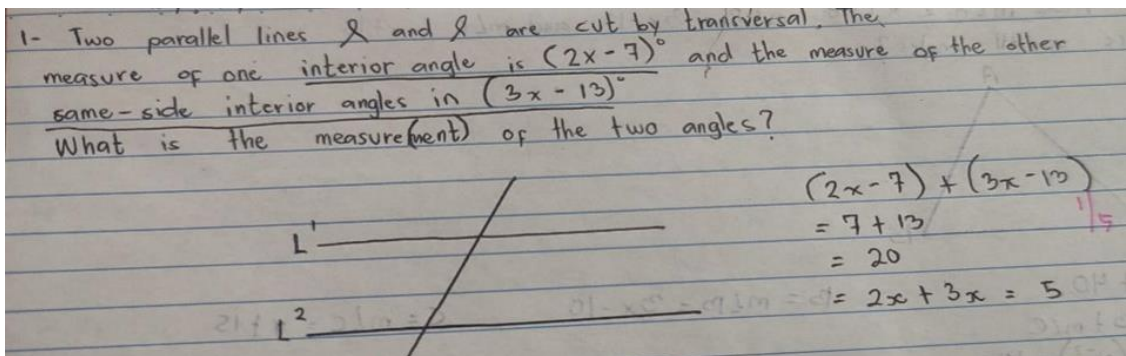 1- Two parallel lines l and l are cut by transversal. The
measure of one interior angle is (2x-7)° and the measure of the other
same-side interior angles in (3x - 13)°
What is the measure(ment) of the two angles?
(2x-7) + (3x-13)
= 7 + 13
= 20
= 2x + 3x = 5
L1
L2
1
5